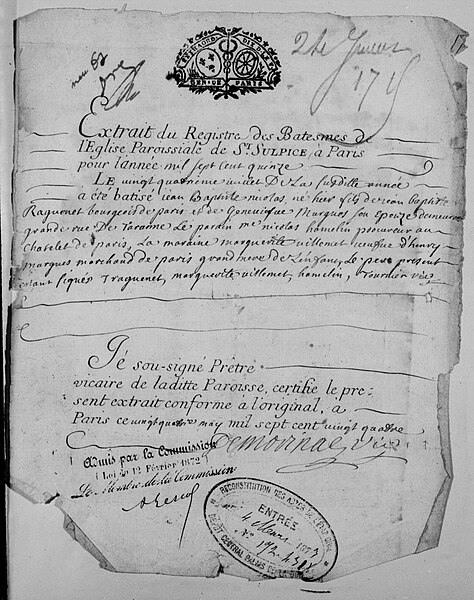 1715
Extrait du Registre des Batesmes de
l'Eglise Paroissiale de St. SULPICE, à Paris
pour l'année mil sept cent quinze
LE vingt quatrieme de la susditte année
a été batisé jean Baptiste nicolas, né hier fils de jean baptiste
Raguenet bourgeois de paris et de Geneviefve Marques son epouze demeurant
grande rue De Taranne Le parain me nicolas hamelin procureur au
Chatelet de paris, La maraine margueritte villemet veufve d'henry
marques marchand de paris grand mere de L'enfant, Le pere present
signés raguenet, margueritte villemet, hamelin,
Je sou-signé Prêtre
vicaire de laditte Paroisse, certifie le pre-
sent extrait conforme à l'original, a
Paris ce vingt quatre may mil sept cent vingt quatre
Admis par la Commission
(Loi du 12 Février 1872)
Le Membre de la Commission
RECONSTITUTION DES ACTES DE L'ÉTAT CIVIL
ENTRÉE
4 Mars 1873
No 192
DÉPÔT CENTRAL PALAIS DE LA BOURSE